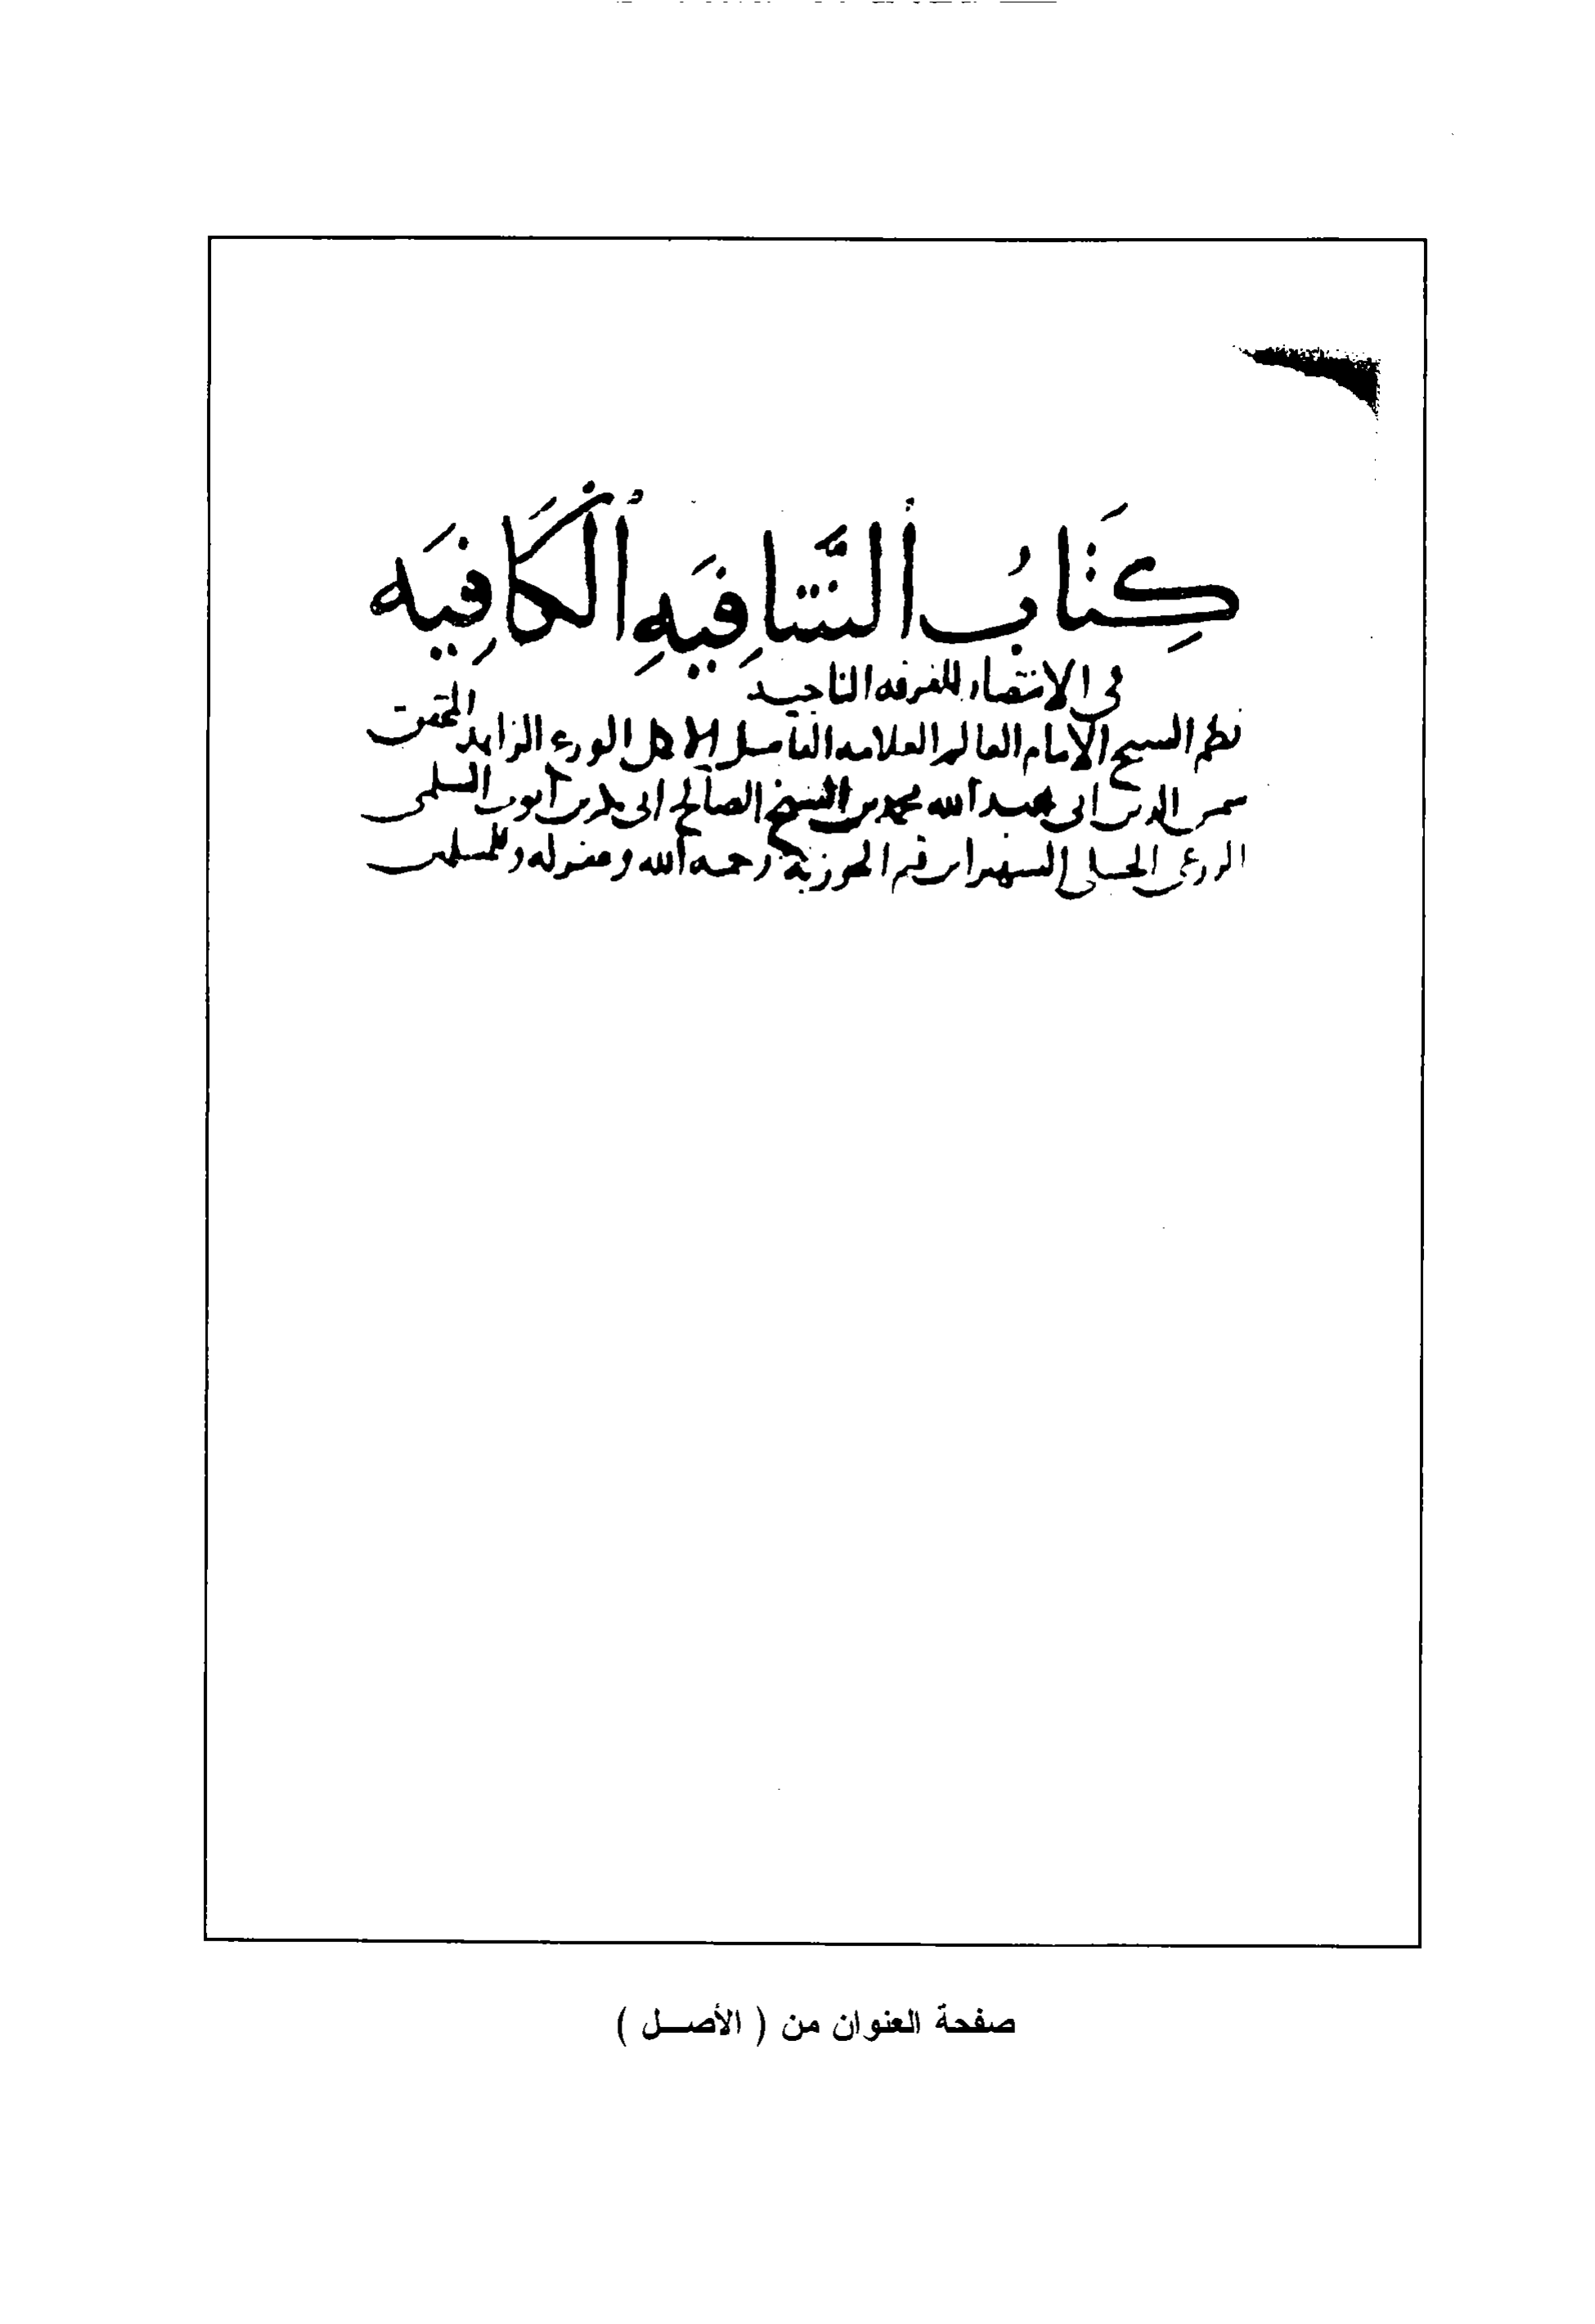 كِتَابُ الشَّافِيَةِ الْكَافِيَه
في الانتصار للفرقه الناجيه
نظم الشيخ الامام العالم العلامه الفاضل الاكمل الورع الزاهد المحقق
شمس الدين ابي عبد الله محمد بن الشيخ الصالح ابى بكر بن أيوب السلمى
الزرعى الحنبلي الشهير ابن قيم الجوزية رحمه الله وغفر له وللمسلمين
صفحة العنوان من ( الأصل )